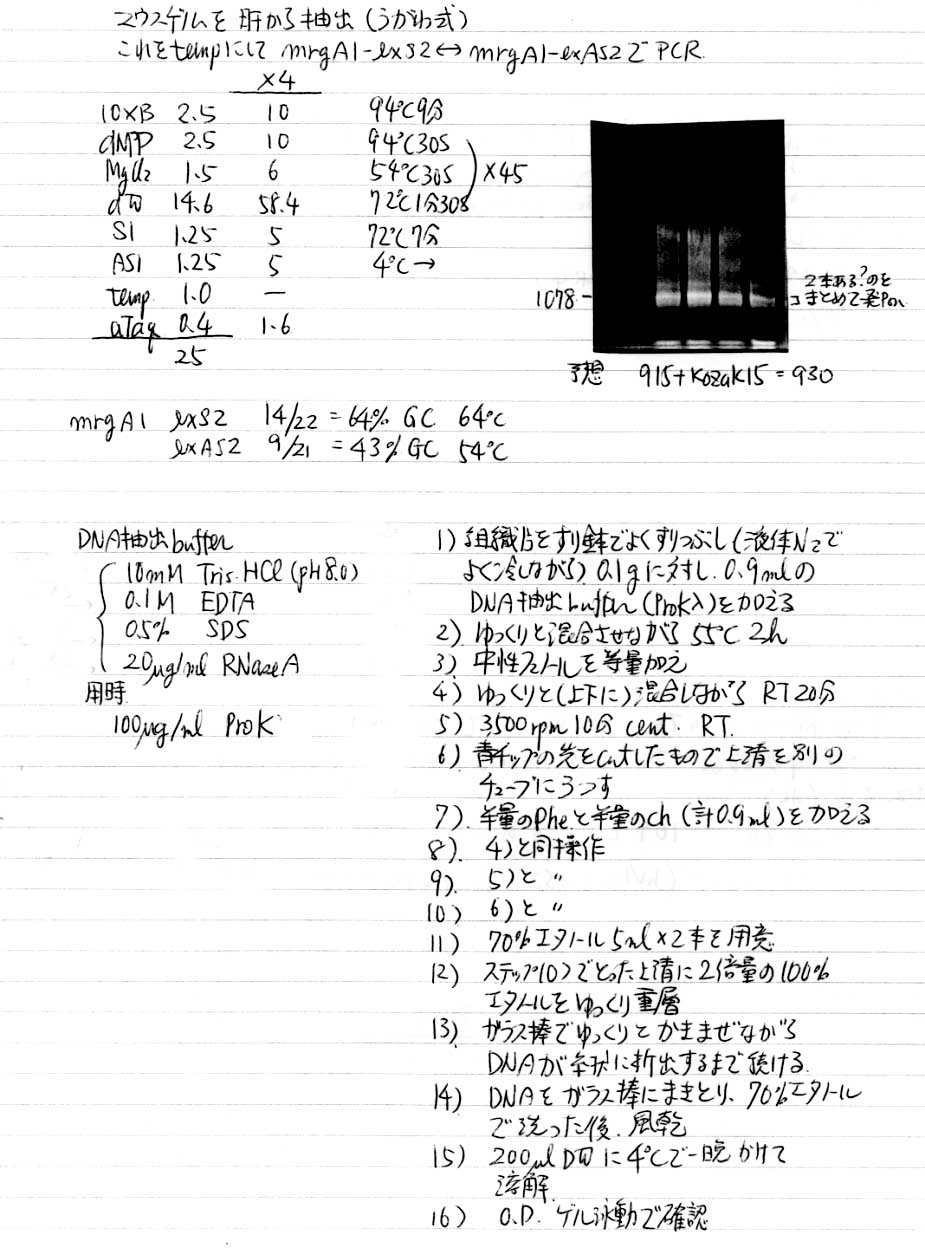 マウスゲノムを肝から抽出（うがわ式）
これをtempにして mrgA1-exS2↔mrgA1-exAS2で PCR.
×4
10×B 2.5 10 94℃9分
dNTP 2.5 10 94℃30S
MgCl2 1.5 6 54℃30S ×45
dW 14.6 58.4 72℃1分30S
S1 1.25 5 72℃7分
AS1 1.25 5 4℃→
temp 1.0 —
aTaq 0.4 1.6
25
1078-
2本ある?のを
まとめて
予想 915+Kozak15=930
mrgA1 exS2 14/22=64% GC 64℃
exAS2 9/21=43% GC 54℃
DNA抽出buffer
10mM Tris.HCl (pH8.0)
0.1M EDTA
0.5% SDS
20μg/ml RNaseA
用時
100μg/ml ProK
1) 組織片をすり鉢でよくすりつぶし(液体N2で
よく冷しながら) 0.1gに対し. 0.9mlの
DNA抽出buffer(ProK入)を加える
2). ゆっくりと混合させながら 55℃ 2h
3). 中性フェノールを等量加え
4) ゆっくりと(上下に)混合しながら RT20分
5) 3500rpm 10分 cent. RT.
6) 青チップの先をcutしたもので上清を別の
チューブにうつす
7). 半量のPheと半量のch (計0.9ml)を加える
8). 4)と同操作
9). 5)と 〃
10) 6)と 〃
11) 70%エタノール 5ml×2本を用意
12) ステップ10)でとった上清に2倍量の100%
エタノールをゆっくり重層
13) ガラス棒でゆっくりとかきまぜながら
DNAが糸状に析出するまで続ける.
14) DNAをガラス棒にまきとり、70%エタノール
で洗った後、風乾
15) 200μl DWに4℃で一晩かけて
溶解.
16) O.D. ゲル泳動で確認